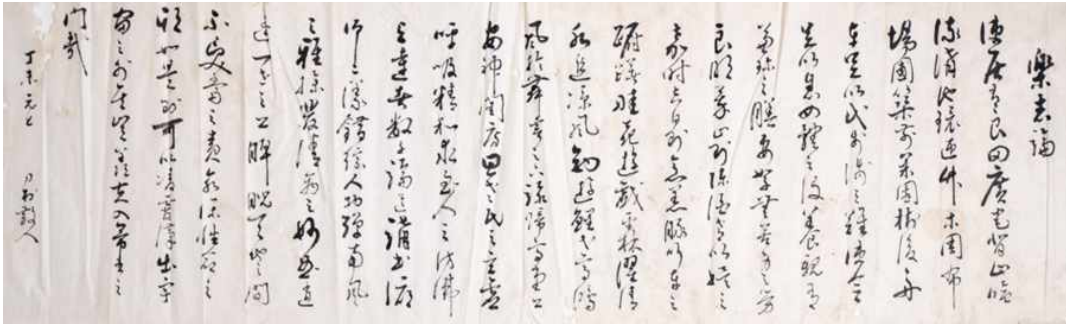 樂志論
使居有良田廣宅背山臨
流溝池環匝竹木周布
場圃築前果園樹後舟
車足以代步涉之難使令
足以息四體之役養親有
兼珍之膳妻孥無苦身之勞
良朋萃止則陳酒肴以娛之
嘉時吉日則烹羔豚以奉之
躊躇畦苑遊戲平林濯清
水追涼風釣游鯉弋高鴻
風於舞雩之下詠歸高堂之上
安神閨房思老氏之玄虛
呼吸精和求至人之彷彿
與達者數子論道講書俯
仰二儀錯綜人物彈南風
之雅操發清商之妙曲逍
遙一世之上睥睨天地之間
不受當時之責永保性命之
期如是則可以凌霄漢出宇
宙之外矣豈羨夫入帝王之
門哉
丁未元